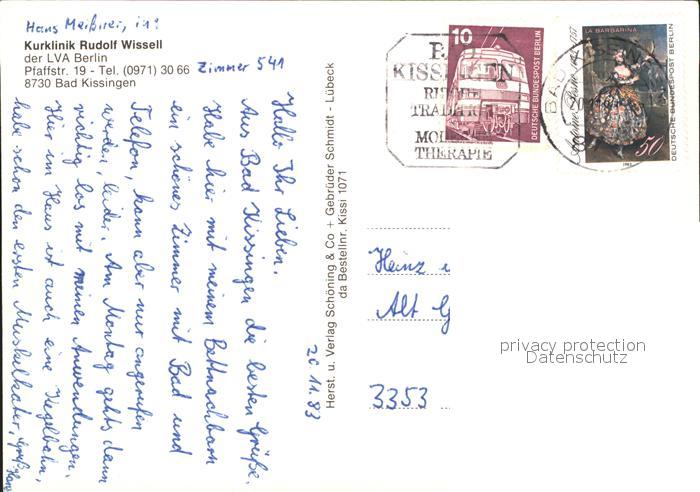 Hans Meißner, in:
Kurklinik Rudolf Wissell
der LVA Berlin
Pfaffstr. 19 - Tel. (0971) 30 66 Zimmer 541
8730 Bad Kissingen
Hallo Ihr Lieben.
Aus Bad Kissingen die besten Grüße.
Habe hier mit meinem Bettnachbarn
ein schönes Zimmer mit Bad und
Telefon, kann aber nur angerufen
werden, leider. Am Montag gehts dann
richtig los mit meinen Anwendungen.
Hier im Haus ist auch eine Kegelbahn,
habe schon den ersten Muskelkater, Gruß Hans
20.11.83
Herst. u. Verlag Schöning & Co + Gebrüder Schmidt - Lübeck
da Bestellnr. Kissi 1071
BAD
KISSINGEN
TRADITION
THERAPIE
10
DEUTSCHE BUNDESPOST BERLIN
LA BARBARINA
Antoine Pesne 1757
50
DEUTSCHE BUNDESPOST BERLIN
BAD
Heinz
Alt G
3353
privacy protection
Datenschutz